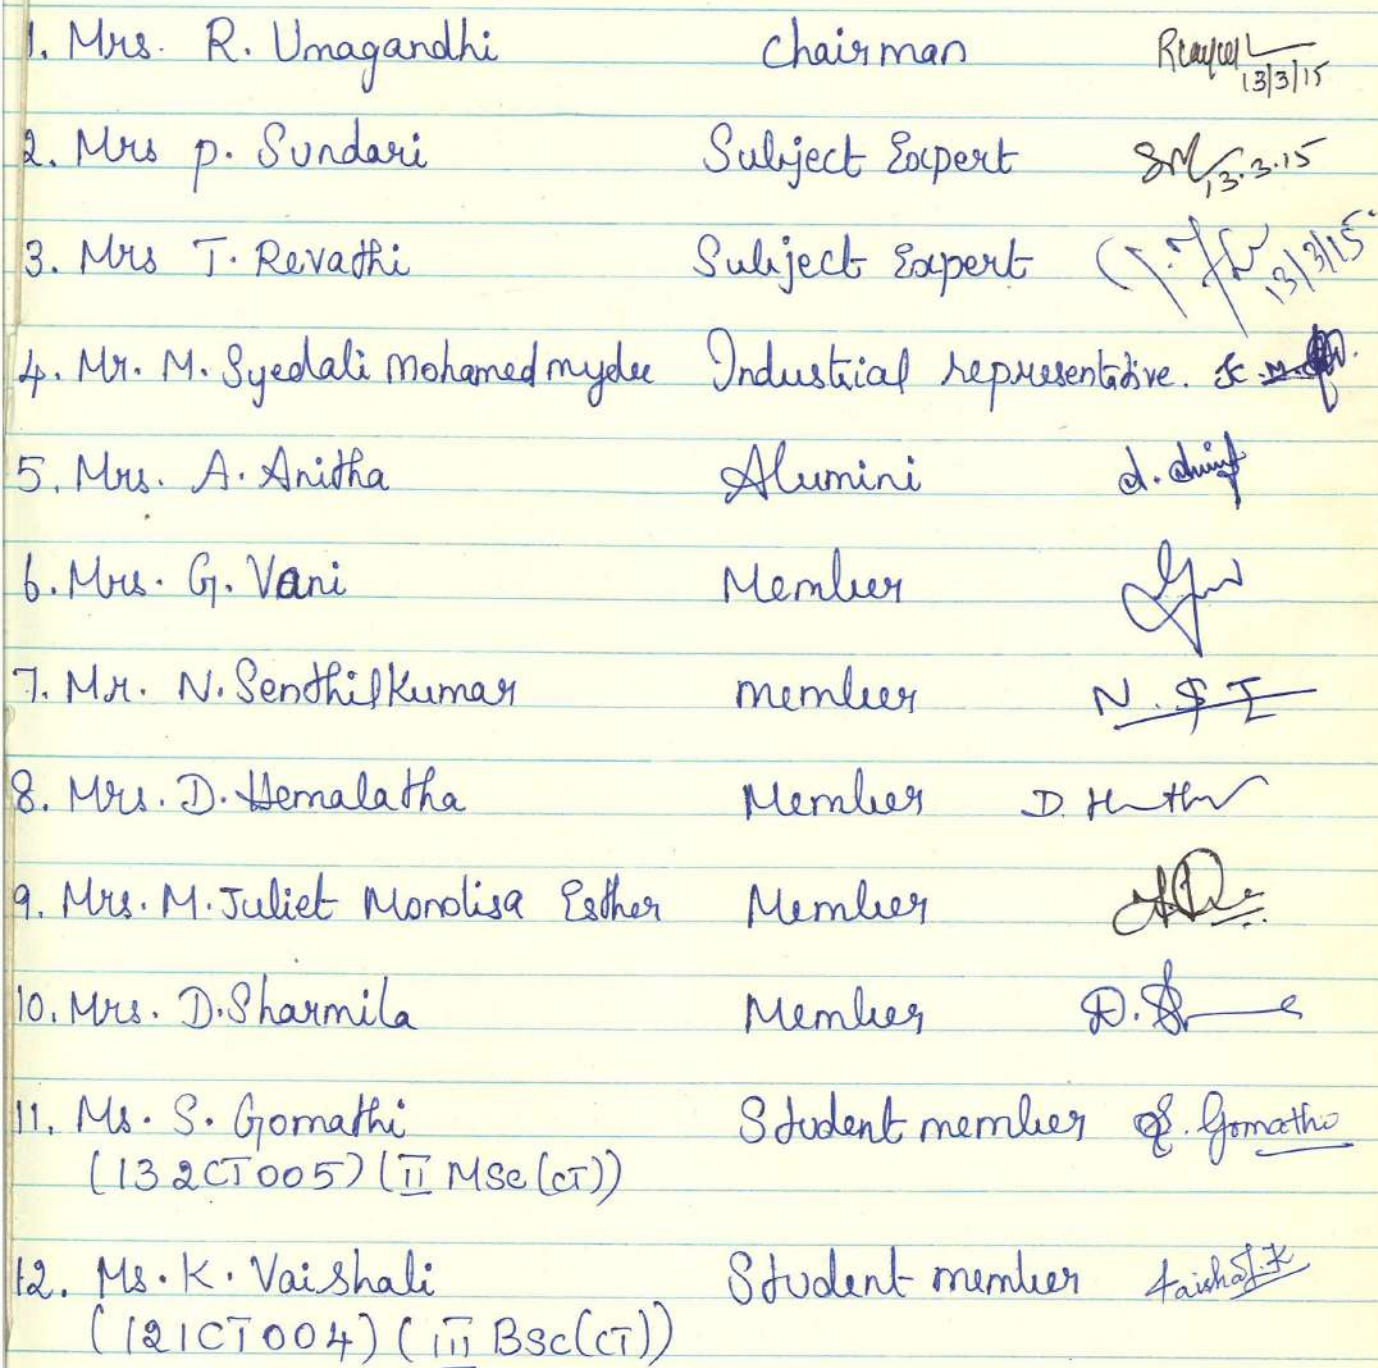 1. Mrs. R. Umagandhi Chairman 13/3/15
2. Mrs P. Sundari Subject Expert 13.3.15
3. Mrs T. Revathi Subject Expert 13/3/15
4. Mr. M. Syedali Mohamed mydee Industrial representative.
5. Mrs. A. Anitha Alumini
6. Mrs. G. Vani Member
7. Mr. N. Senthilkumar member
8. Mrs. D. Hemalatha Member
9. Mrs. M. Juliet Monolisa Esther Member
10. Mrs. D. Sharmila Member
11. Ms. S. Gomathi Student member S. Gomathi
(132CT005) (II MSc (CT))
12. Ms. K. Vaishali Student member Vaishali.K
(121CT004) (III BSc (CT))